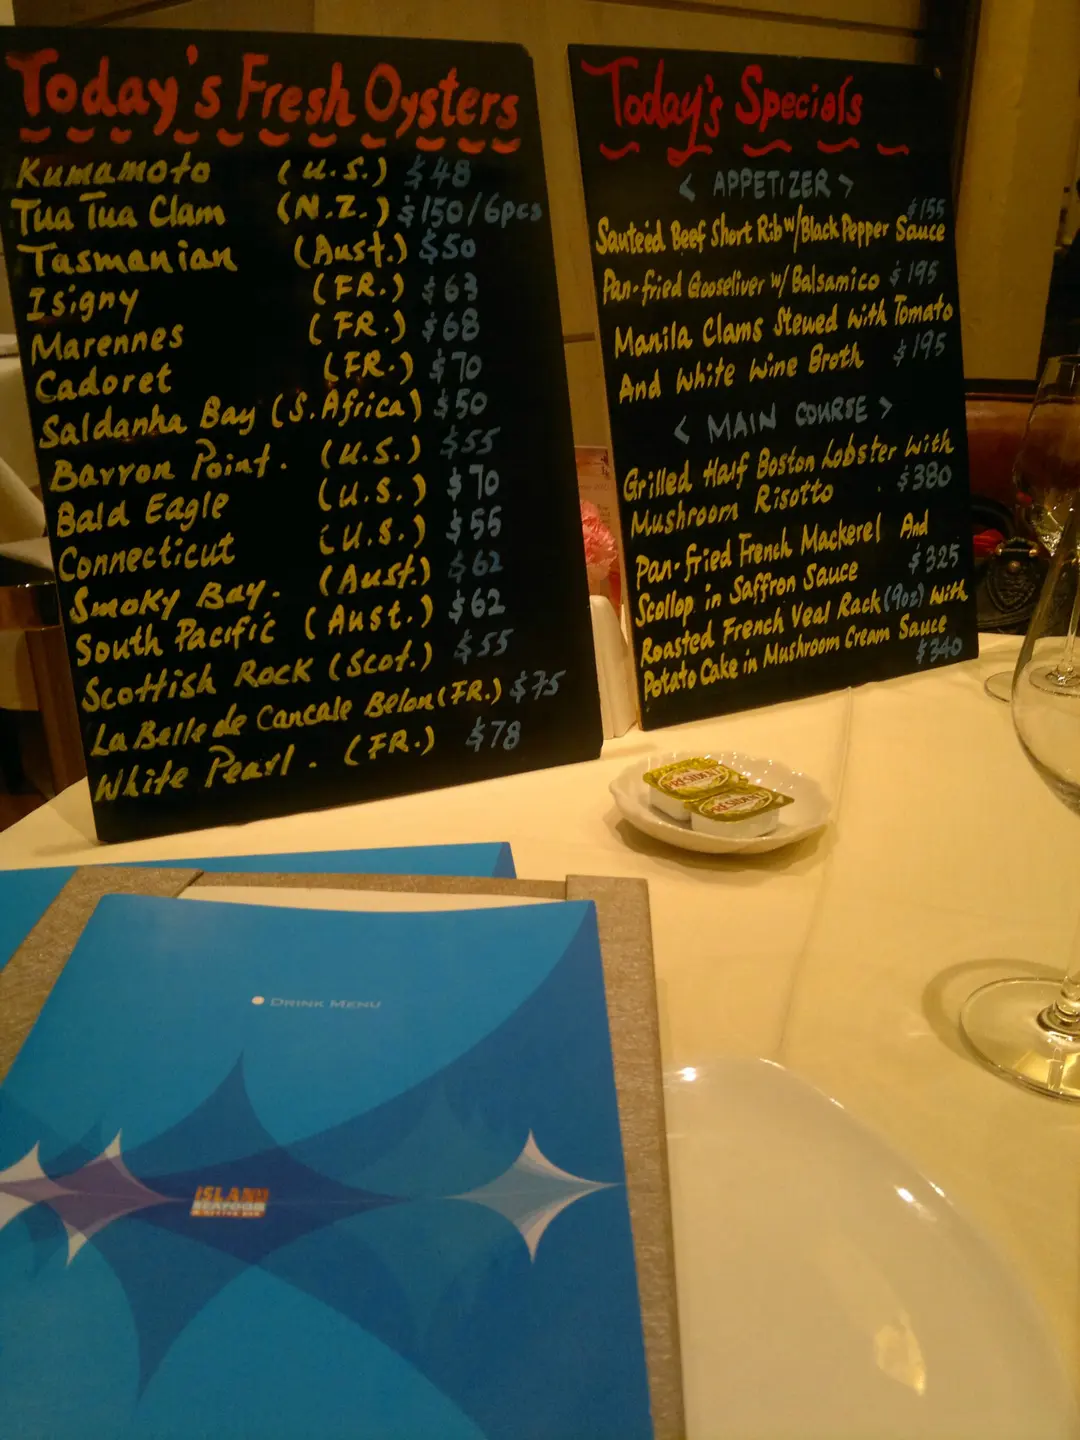 Today's Fresh Oysters
Kumamoto (U.S.) $48
Tua Tua Clam (N.Z.) $150/6pcs
Tasmanian (Aust.) $50
Isigny (FR.) $63
Marennes (FR.) $68
Cadoret (FR.) $70
Saldanha Bay (S.Africa) $50
Barron Point. (U.S.) $55
Bald Eagle (U.S.) $70
Connecticut (U.S.) $55
Smoky Bay. (Aust.) $62
South Pacific (Aust.) $62
Scottish Rock (Scot.) $55
La Belle de Cancale Belon (FR.) $75
White Pearl. (FR.) $78
Today's Specials
< APPETIZER >
$155
Sauteéd Beef Short Rib w/Black Pepper Sauce
Pan-fried Gooseliver w/ Balsamico $195
Manila Clams Stewed with Tomato
And White Wine Broth $195
< MAIN COURSE >
Grilled Half Boston Lobster with
Mushroom Risotto $380
Pan-fried French Mackerel And
Scollop in Saffron Sauce $325
Roasted French Veal Rack (9oz) with
Potato Cake in Mushroom Cream Sauce
$340
PRÉSIDENT
PRÉSIDENT
DRINK MENU
ISLAND
SEAFOOD
& OYSTER BAR